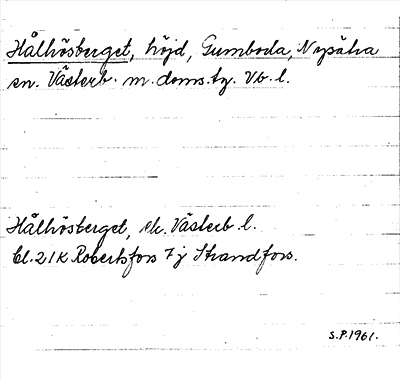 Hålhösberget, höjd, Gumboda, Nysätra
sn. Västerb. m. doms.tg. Vb. l.
Hålhösberget, ek. Västerb. l.
bl. 21K Robertsfors 7j Strandfors.
S.P. 1961.